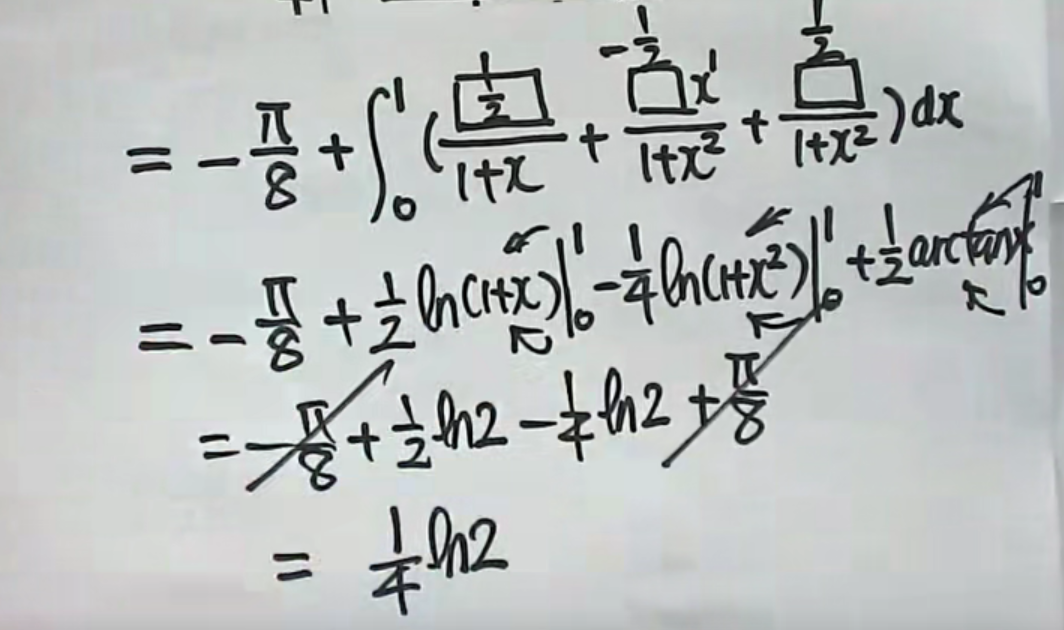 = -π/8 + ∫₀¹ ( (1/2)/(1+x) + (-1/2 x¹)/(1+x²) + (1/2)/(1+x²) ) dx
= -π/8 + 1/2 ln(1+x)|₀¹ - 1/4 ln(1+x²)|₀¹ + 1/2 arctanx|₀¹
= -π/8 + 1/2 ln2 - 1/4 ln2 + π/8
= 1/4 ln2